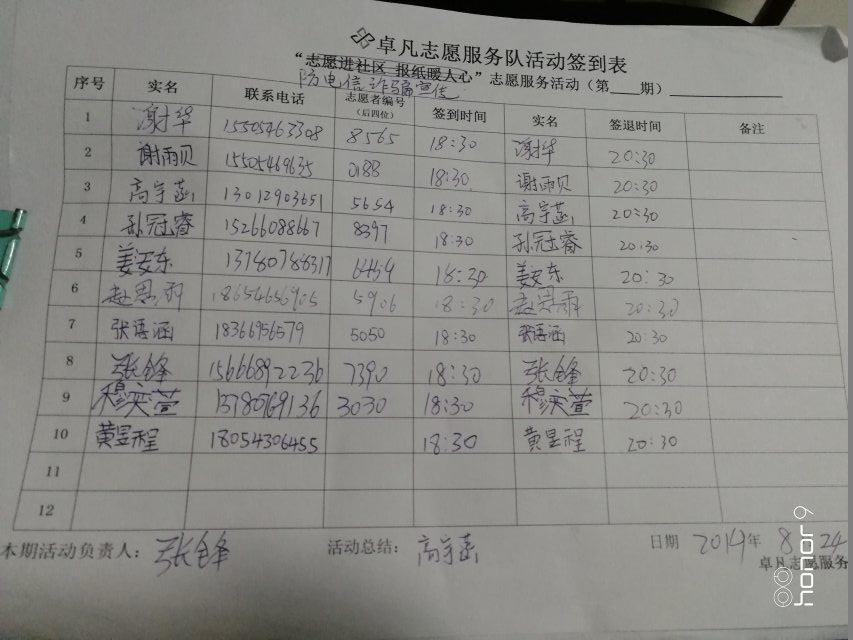 卓凡志愿服务队活动签到表
“志愿进社区 报纸暖人心”志愿服务活动（第____期）
防电信诈骗宣传
序号 实名 联系电话 志愿者编号（后四位） 签到时间 实名 签退时间 备注
1 谢华 15505463308 8565 18:30 谢华 20:30
2 谢雨贝 15505469635 0188 18:30 谢雨贝 20:30
3 高宇菡 13012903651 5654 18:30 高宇菡 20:30
4 孙冠睿 15266088667 8397 18:30 孙冠睿 20:30
5 姜安东 13780788317 6464 18:30 姜安东 20:30
6 赵思雨 18654656905 5906 18:30 赵思雨 20:30
7 张语涵 18366956579 5050 18:30 张语涵 20:30
8 张锋 15666892236 7390 18:30 张锋 20:30
9 穆奕萱 13780769136 3030 18:30 穆奕萱 20:30
10 黄昱程 18054306455 18:30 黄昱程 20:30
11
12
本期活动负责人：张锋 活动总结：高宇菡 日期 2019年 8. 24
卓凡志愿服务
honor 9